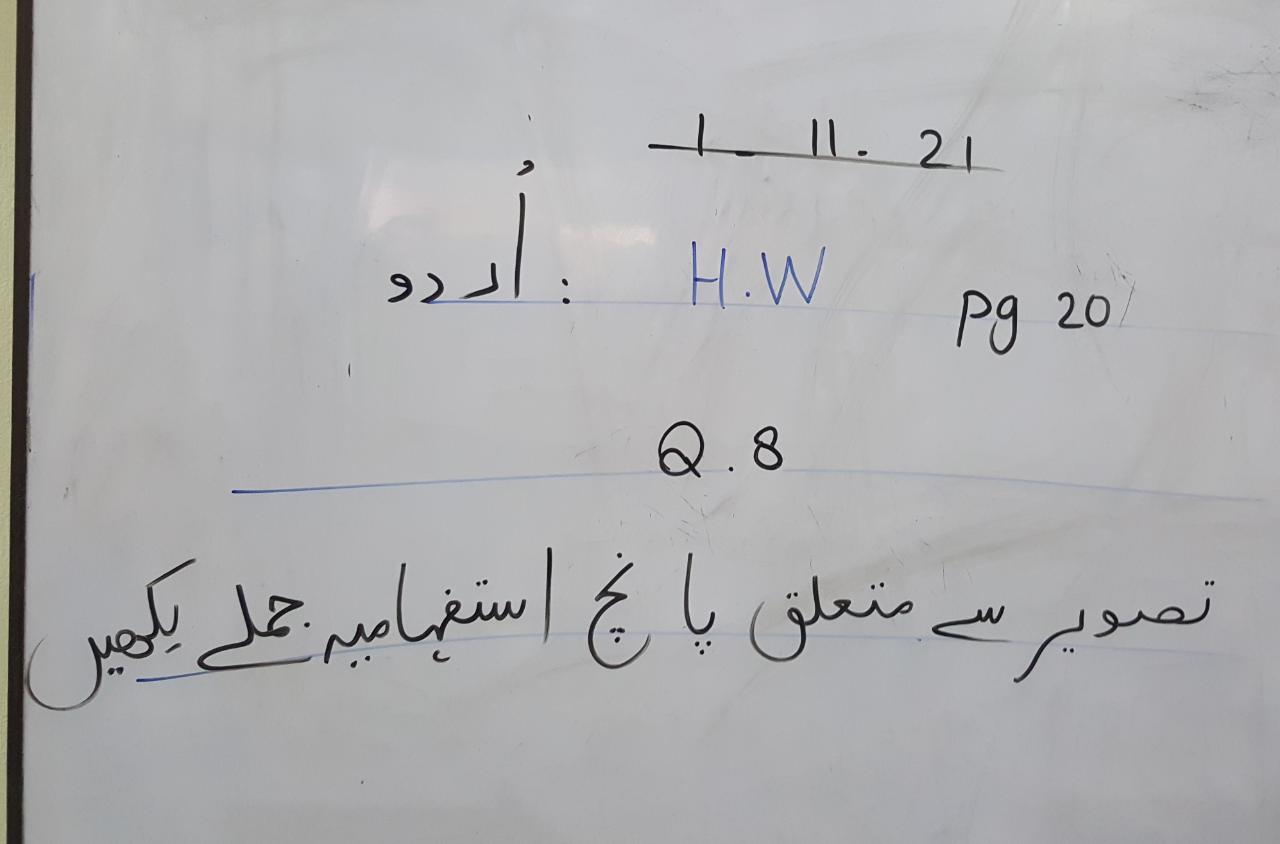 1. 11. 21
اُردو : H.W pg 20
Q.8
تصویر سے متعلق پانچ استفہامیہ جملے لکھیں